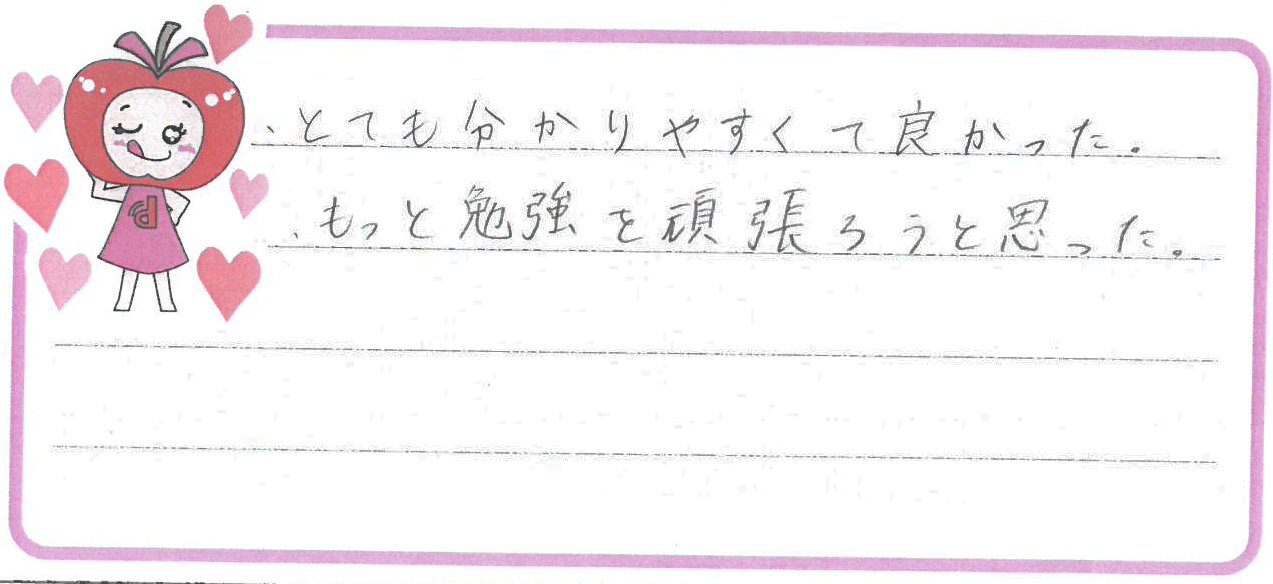 、とても分かりやすくて良かった。
、もっと勉強を頑張ろうと思った。